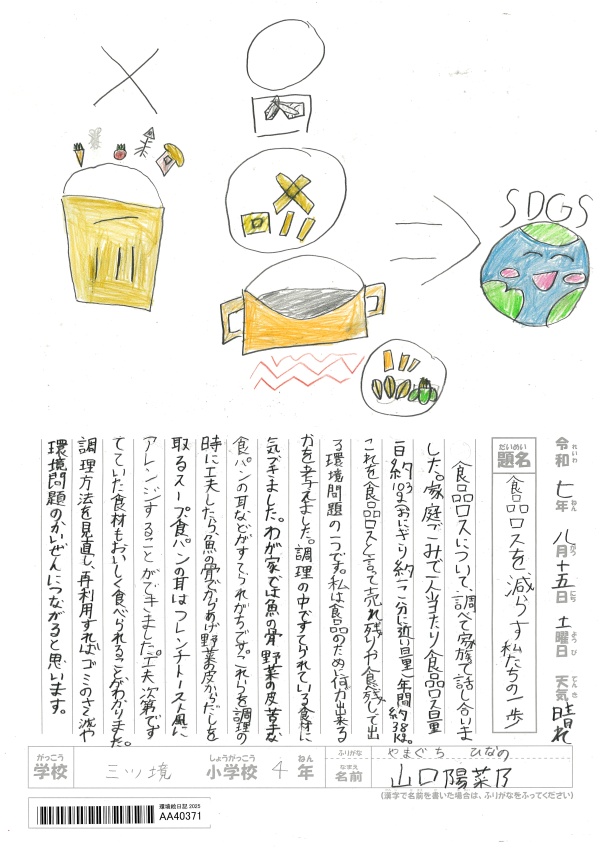 SDGS
令和 七年 八月 十五日 土曜日 天気 晴れ
れいわ ねん がつ にち ようび てんき
だいめい
題名
食品ロスを、減らす私たちの一歩
食品ロスについて、調べて家族で話し合いま
した。家庭ごみで一人当たり食品ロス量
一日約103g(おにぎり約一こ分に近い量)一年間約38kg。
これを食品ロスと言って売れ残りや食べ残しで出
る環境問題の一つです。私は食品のために何が出来る
かを考えました。調理の中ですてられている食材に
気づきました。わが家では魚の骨 野菜の皮 苦手な
食パンの耳などがすてられがちです。これらを調理の
時に工夫したら、魚の骨でからあげ野菜皮からだしを
取るスープ食パンの耳はフレンチトースト風に
アレンジすることができました。工夫次第です
てていた食材もおいしく食べられることがわかりました。
調理方法を見直し、再利用すればゴミのさく減や
環境問題のかいぜんにつながると思います。
がっこう しょうがっこう ねん
学校 三ツ境 小学校 4年
ふりがな やまぐち ひなの
なまえ
名前 山口陽菜乃
(漢字で名前を書いた場合は、ふりがなをふってください)
環境絵日記 2025
AA40371